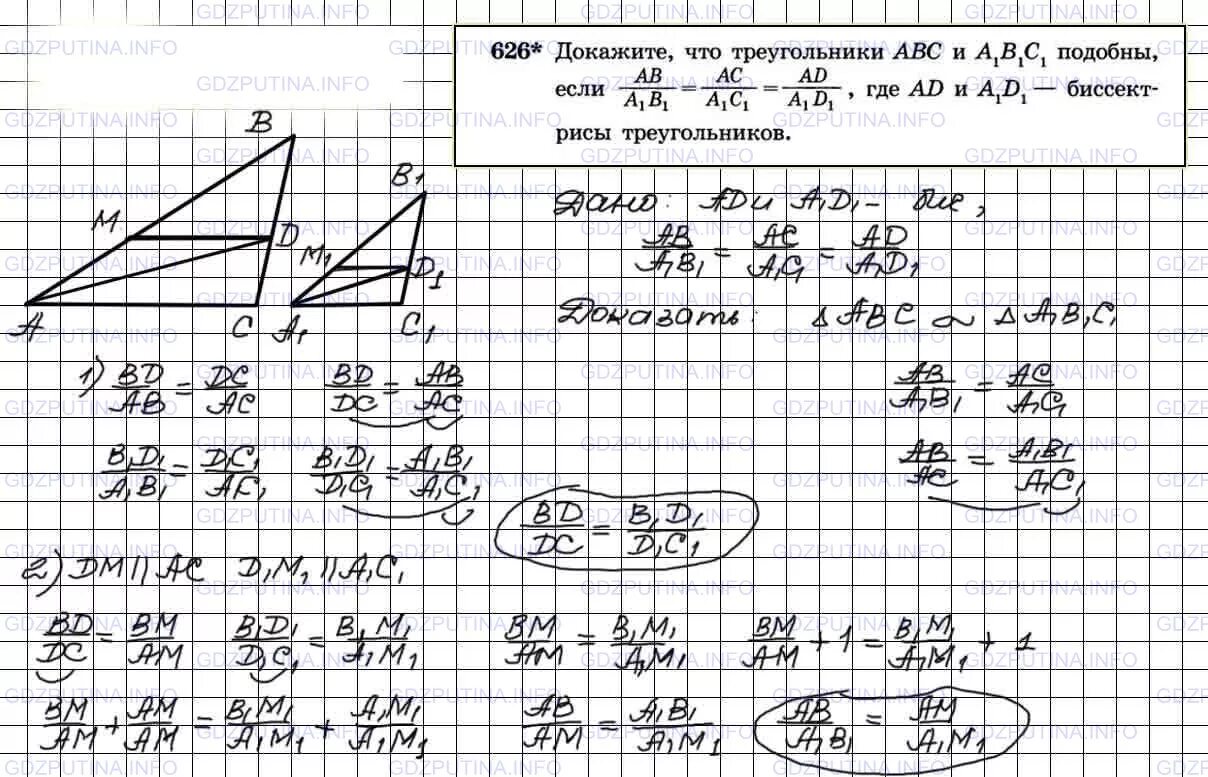 626* Докажите, что треугольники ABC и A₁B₁C₁ подобны,
если AB/A₁B₁ = AC/A₁C₁ = AD/A₁D₁, где AD и A₁D₁ — биссект-
рисы треугольников.
B
B₁
M
D
M₁
D₁
A
C
A₁
C₁
Дано: AD и A₁D₁ – бис,
AB/A₁B₁ = AC/A₁C₁ = AD/A₁D₁
Доказать: △ABC ∾ △A₁B₁C₁
1) BD/AB = DC/AC BD/DC = AB/AC AB/A₁B₁ = AC/A₁C₁
B₁D₁/A₁B₁ = D₁C₁/AC₁ B₁D₁/D₁C₁ = A₁B₁/A₁C₁ AB/AC = A₁B₁/A₁C₁
BD/DC = B₁D₁/D₁C₁
2) DM || AC D₁M₁ || A₁C₁
BD/DC = BM/AM B₁D₁/D₁C₁ = B₁M₁/A₁M₁ BM/AM = B₁M₁/A₁M₁ BM/AM + 1 = B₁M₁/A₁M₁ + 1
BM/AM + AM/AM = B₁M₁/A₁M₁ + A₁M₁/A₁M₁ AB/AM = A₁B₁/A₁M₁ AB/A₁B₁ = AM/A₁M₁
GDZPUTINA.INFO